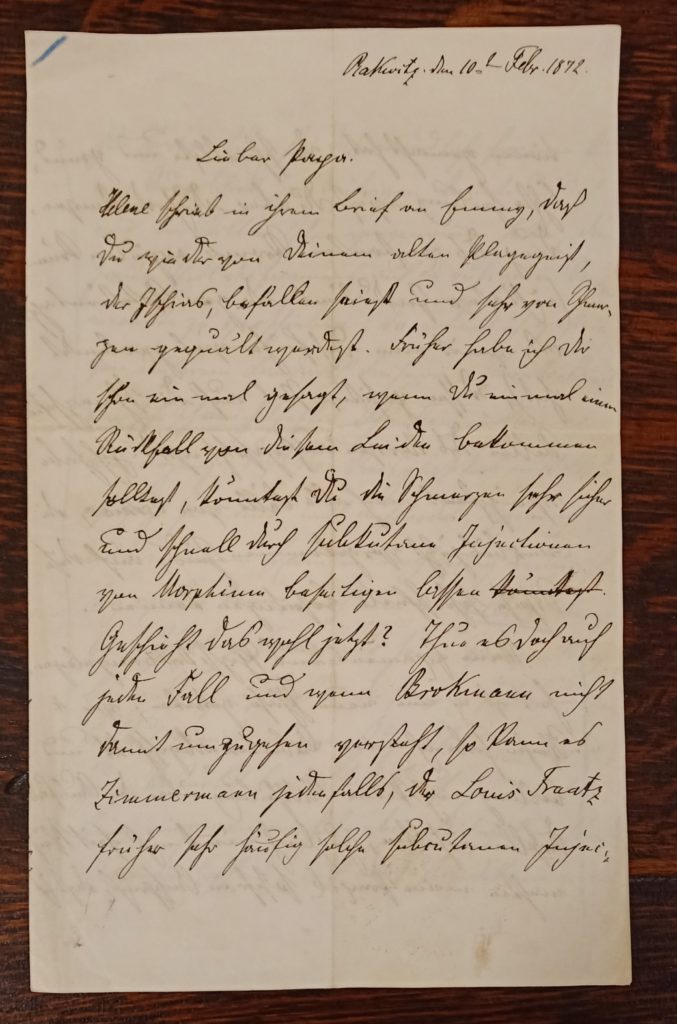 Rakwitz. den 10t Febr. 1872.
Lieber Papa.
Helene schrieb in ihrem Brief an Emmy, daß
Du wieder von Deinem alten Plagegeist,
der Ischias, befallen seiest und sehr von Schmer-
zen gequält werdest. Früher habe ich Dir
schon einmal gesagt, wenn Du einmal einen
Rückfall von diesem Leiden bekommen
solltest, könntest Du die Schmerzen sehr sicher
und schnell durch subkutane Injectionen
von Morphium beseitigen lassen könntest.
Geschieht das wohl jetzt? Thue es doch auf
jeden Fall und wenn Brokmann nicht
damit umzugehen versteht, so kann es
Zimmermann jedenfalls, der Louis Traatz
früher sehr häufig solche subcutanen Injec-